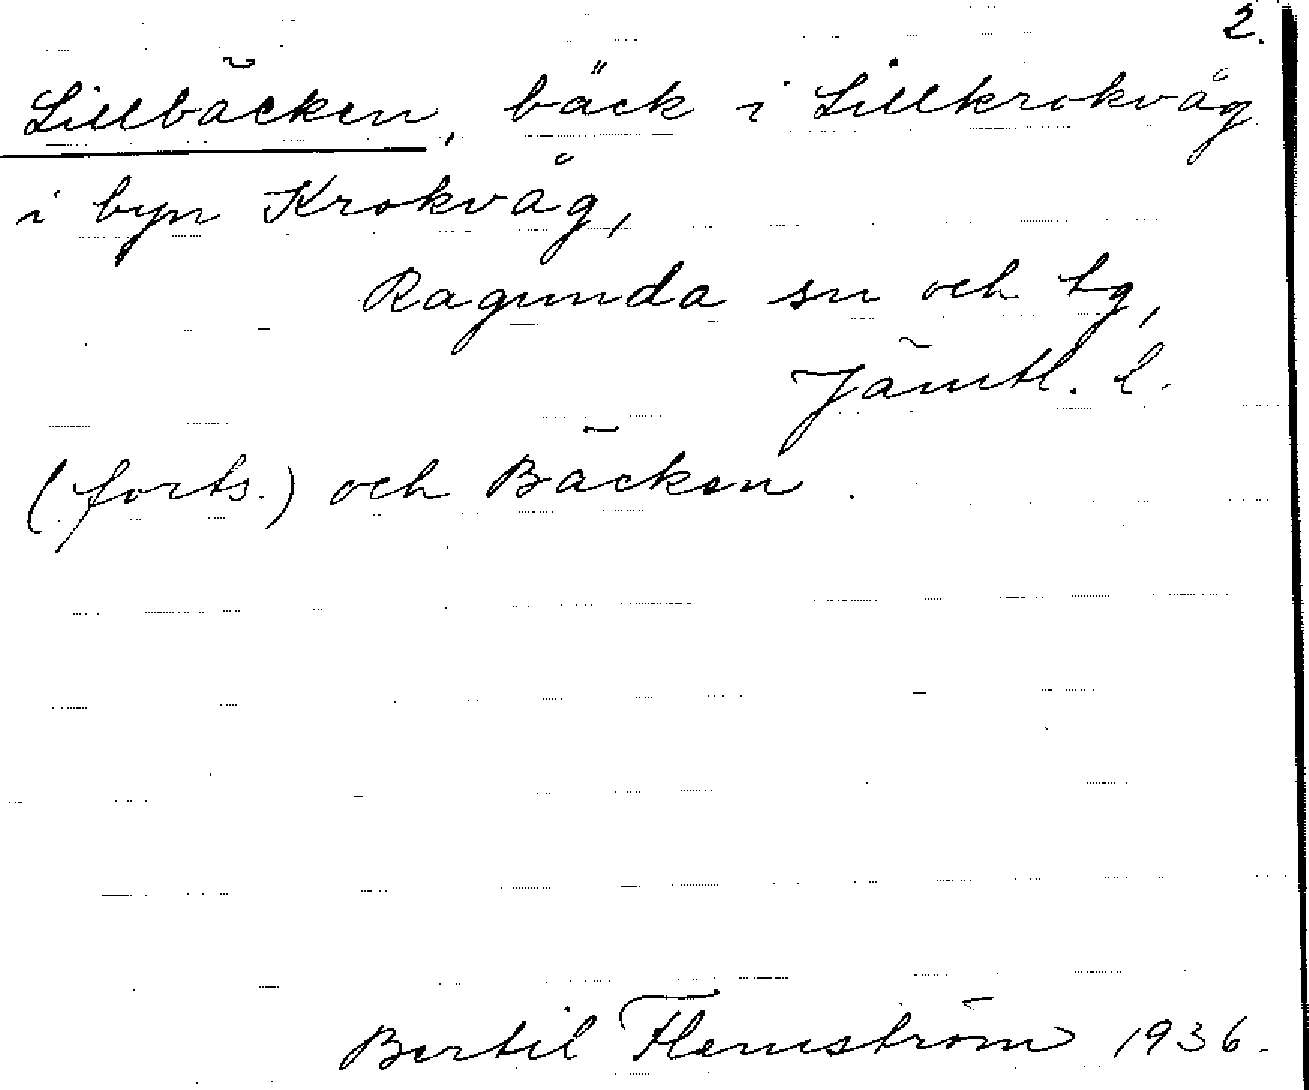 2.
Lillbäcken, bäck i Lillkrokvåg
i byn Krokvåg,
Ragunda sn och tg,
Jämtl. l.
(forts.) och Bäcken.
Bertil Flemström 1936.